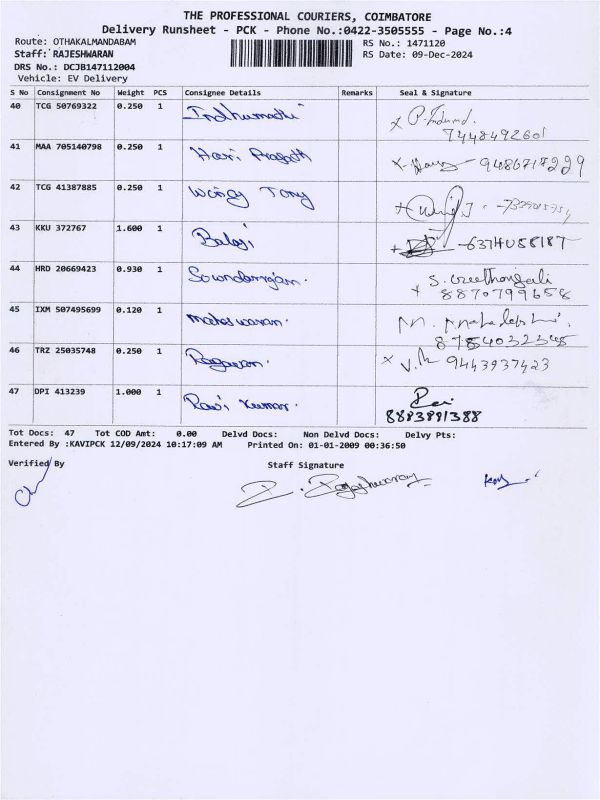 THE PROFESSIONAL COURIERS, COIMBATORE
Delivery Runsheet - PCK - Phone No.:0422-3505555 - Page No.:4
Route: OTHAKALMANDABAM
RS No.: 1471120
Staff: RAJESHWARAN
RS Date: 09-Dec-2024
DRS No.: DCJB147112004
Vehicle: EV Delivery
S No Consignment No Weight PCS Consignee Details Remarks Seal & Signature
40 TCG 50769322 0.250 1 Indhumathi
7448492601
41 MAA 705140798 0.250 1 Hari Prasath
42 TCG 41387885 0.250 1 Tony
43 KKU 372767 1.600 1 Balaji -6374088187
44 HRD 20669423 0.930 1
8870799658
45 IXM 507495699 0.120 1 maheswaran. M.
46 TRZ 25035748 0.250 1 Ragavan. 9443937423
47 DPI 413239 1.000 1 Ravi Kumar. Ravi
8883891388
Tot Docs: 47 Tot COD Amt: 0.00 Delvd Docs: Non Delvd Docs: Delvy Pts:
Entered By :KAVIPCK 12/09/2024 10:17:09 AM Printed On: 01-01-2009 00:36:50
Verified By Staff Signature